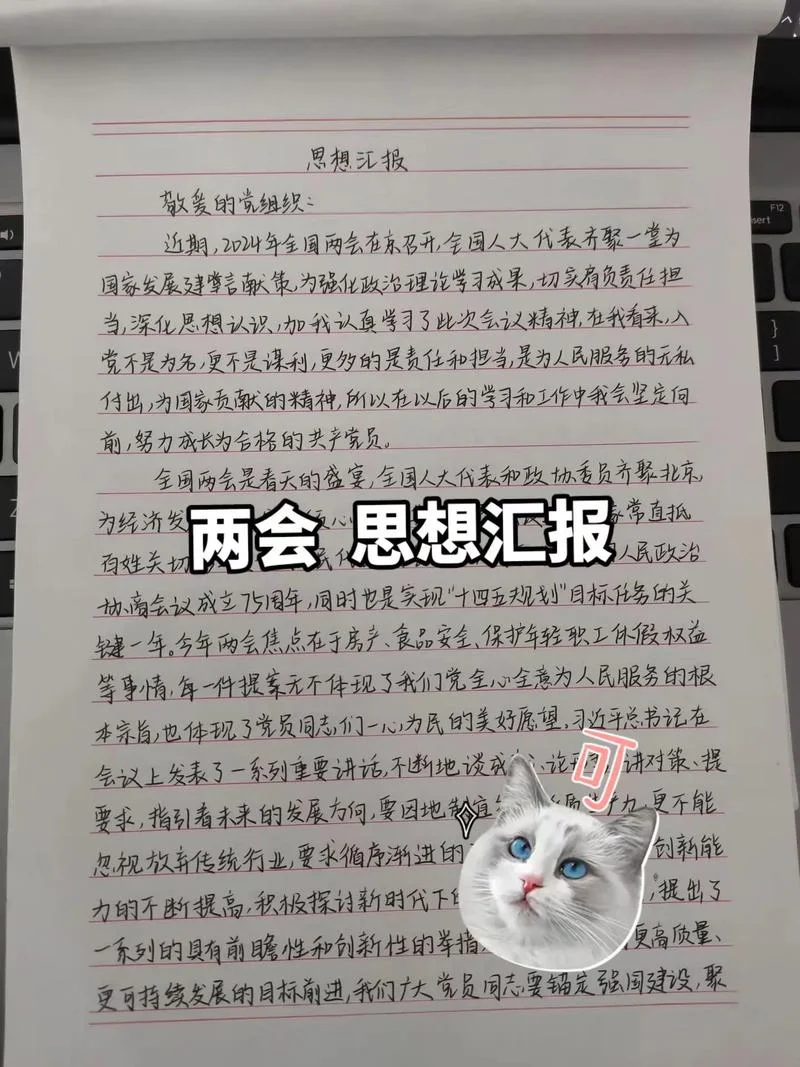 思想汇报
敬爱的党组织：
近期，2024年全国两会在京召开，全国人大代表齐聚一堂为
国家发展建掌言献策，为强化政治理论学习成果，切实肩负责任担
当，深化思想认识，加我认真学习了此次会议精神，在我看来，入
党不是为名，更不是谋利，更多的是责任和担当，是为人民服务的无私
付出，为国家贡献的精神，所以在以后的学习和工作中我会坚定向
前，努力成长为合格的共产党员。
全国两会是春天的盛宴，全国人大代表和政协委员齐聚北京，
为经济发 心 常直抵
两会 思想汇报
百姓关切 民代 人民政治
协商会议成立75周年，同时也是实现"十四五规划"目标任务的关
键一年。今年两会焦点在于房产、食品安全、保护年轻职工休假权益
等事情，每一件提案无不体现了我们党全心全意为人民服务的根
本宗旨，也体现了党员同志们一心为民的美好愿望，习近平总书记在
会议上发表了一系列重要讲话，不断地谈成 、论形 讲对策、提
要求，指引着未来的发展方向，要因地制宜 更不能
可
忽视放弃传统行业，要求循序渐进的 创新能
力的不断提高，积极探讨新时代下的 ，提出了
一系列的具有前瞻性和创新性的举措 更高质量、
更可持续发展的目标前进，我们广大党员同志要锚定强国建设，聚
F12